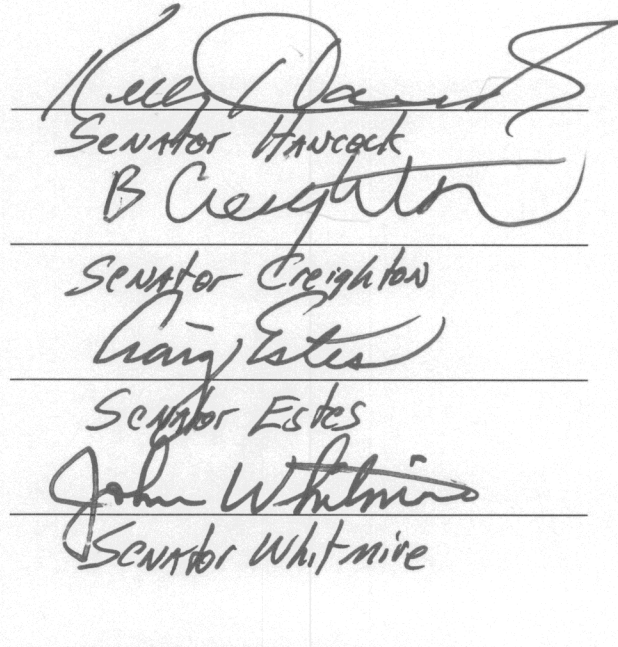 Kelly Hancock
Senator Hancock
B Creighton
Senator Creighton
Craig Estes
Senator Estes
John Whitmire
Senator Whitmire